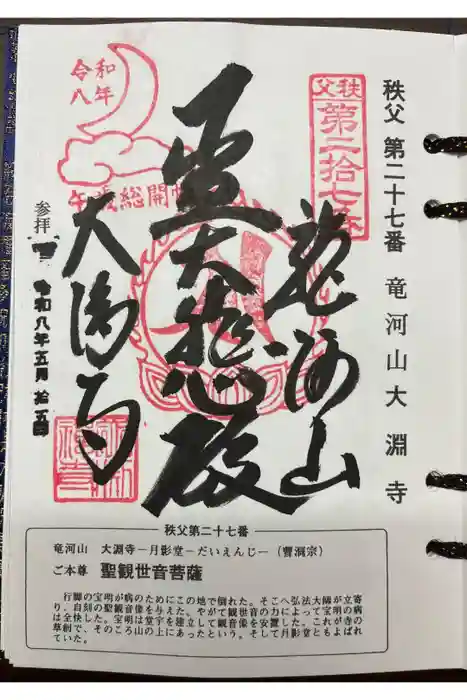 秩父 第二十七番 竜河山大淵寺
秩父
第二拾七番
龍河山
大悲殿
大渕寺
令和八年
午歳総開帳
参拝 令和八年五月拾五日
秩父第二十七番
竜河山 大淵寺−月影堂−だいえんじ−(曹洞宗)
ご本尊 聖観世音菩薩
行脚の宝明が病のためにこの地で倒れた。そこへ弘法大師が立寄
り、自刻の観音像を与えた。やがて観世音の力によって宝明の病
は全快した。宝明は堂宇を建立して観音像を安置した。これが寺の
草創で、そのころ山の上にあったという。そして月影堂ともよばれ
ていた。